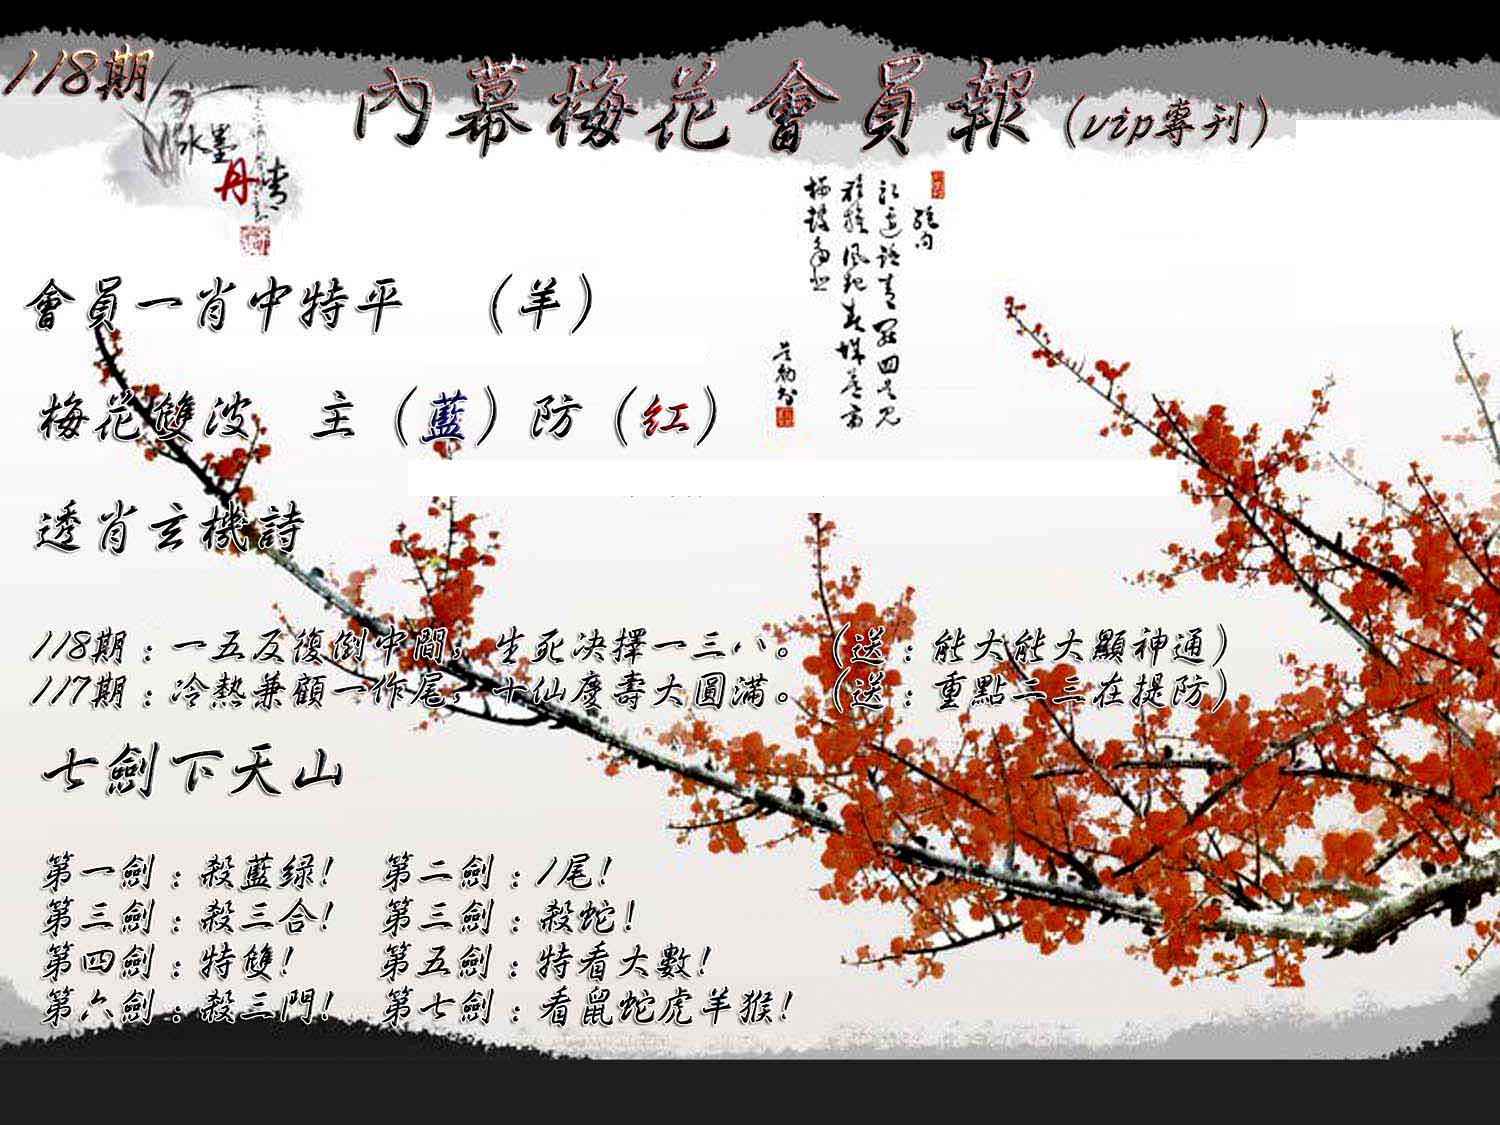 118期
內幕梅花會員報(vip專刊)
水墨
丹青
會員一肖中特平 (羊)
梅花雙波 主(藍)防(紅)
透肖玄機詩
118期:一五反復倒中間,生死决擇一三八。(送:能大能大顯神通)
117期:冷熱兼顧一作尾,十仙慶壽大圓滿。(送:重點二三在提防)
七劍下天山
第一劍:殺藍绿! 第二劍:1尾!
第三劍:殺三合! 第三劍:殺蛇!
第四劍:特雙! 第五劍:特看大數!
第六劍:殺三門! 第七劍:看鼠蛇虎羊猴!